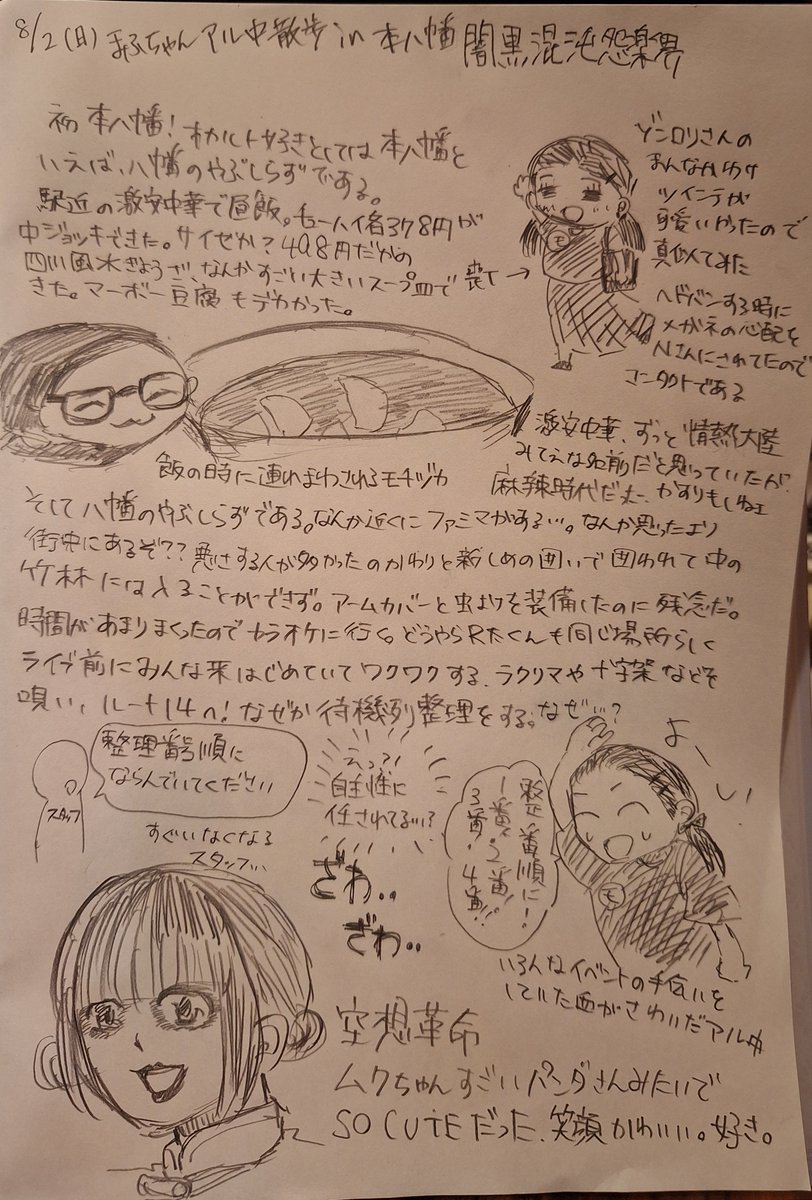 8/2(日)まふちゃんアル中散歩in本八幡 闇黒混沌怨楽界
初本八幡!オカルト好きとしては本八幡と
いえば、八幡のやぶしらずである。
駅近の激安中華で昼飯。ウーハイ1杯378円が
中ジョッキできた。サイゼか?408円だかの
四川風水ぎょうざ、なんかすごい大きいスープ皿で
きた。マーボー豆腐もデカかった。
ゾンロリさんの
まんなかわけ
ツインテが
可愛いかったので
真似てみた
喪T→
ヘドバンする時に
メガネの心配を
Nさんにされてたので
コンタクトである
飯の時に連れまわされるモチヅカ
激安中華、ずっと情熱大陸
みてえな名前だと思っていたが
麻辣時代だた、かすりもしねェ
そして八幡のやぶしらずである。なんか近くにファミマがあるい…。なんか思ったより
街中にあるぞ??悪さする人が多かったのかわりと新しめの囲いで囲われて中の
竹林には入ることができず。アームカバーと虫よけを装備したのに残念だ。
時間があまりまくったのでカラオケに行く。どうやらRたくんも同じ場所らしく
ライブ前にみんな来はじめていてワクワクする、ラクリマや十字架などを
唄い、ルート14へ!なぜか待機列整理をする。なぜ…?
整理番号順に
ならんでいてください
スタッフ
すぐいなくなる
スタッフ…
えっ?!
自主性に
任されてるぅ!?
ざわ‥
ざわ‥
整番順に!
1番!2番!
3番!4番!!
よーい
いろんなイベントの手伝いを
していた血がさわいだアル中
空想革命
ムクちゃんすごいパンダさんみたいで
SO CUTEだった、笑顔かわいい。好き。